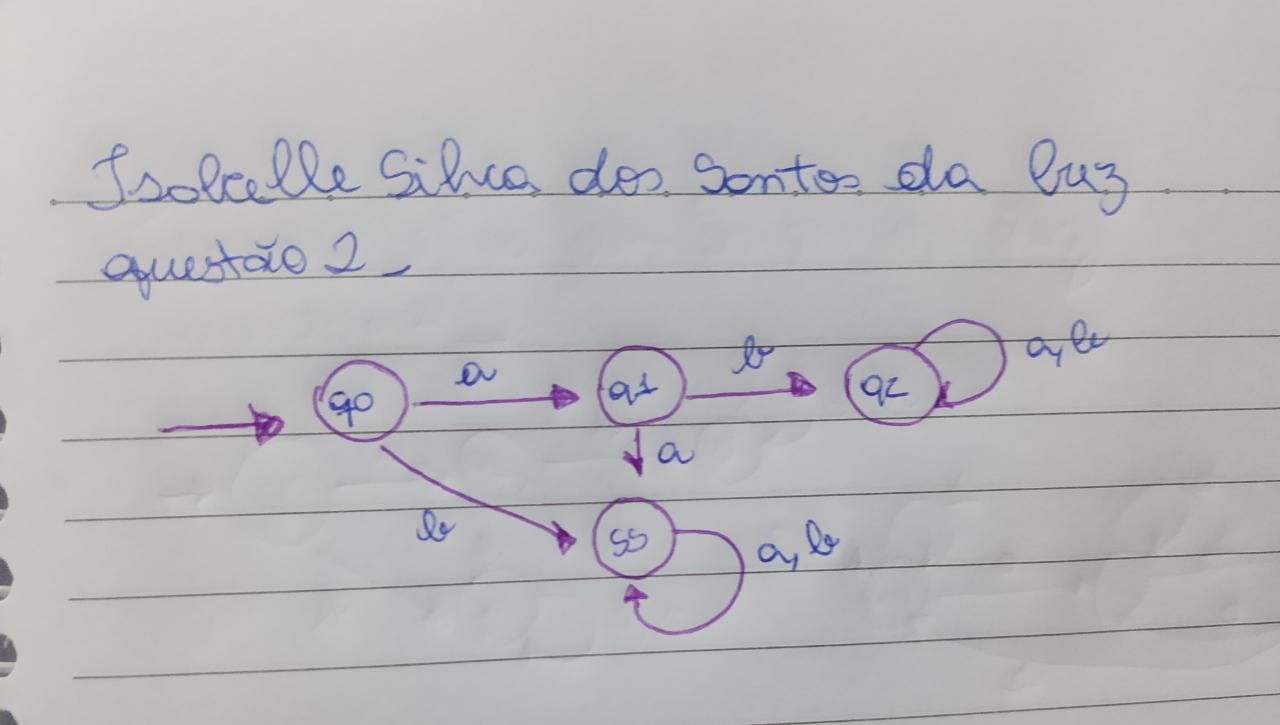 Isabelle Silva dos Santos da Luz
questão 2
a
b
a,b
q0
q1
q2
a
b
ss
a,b